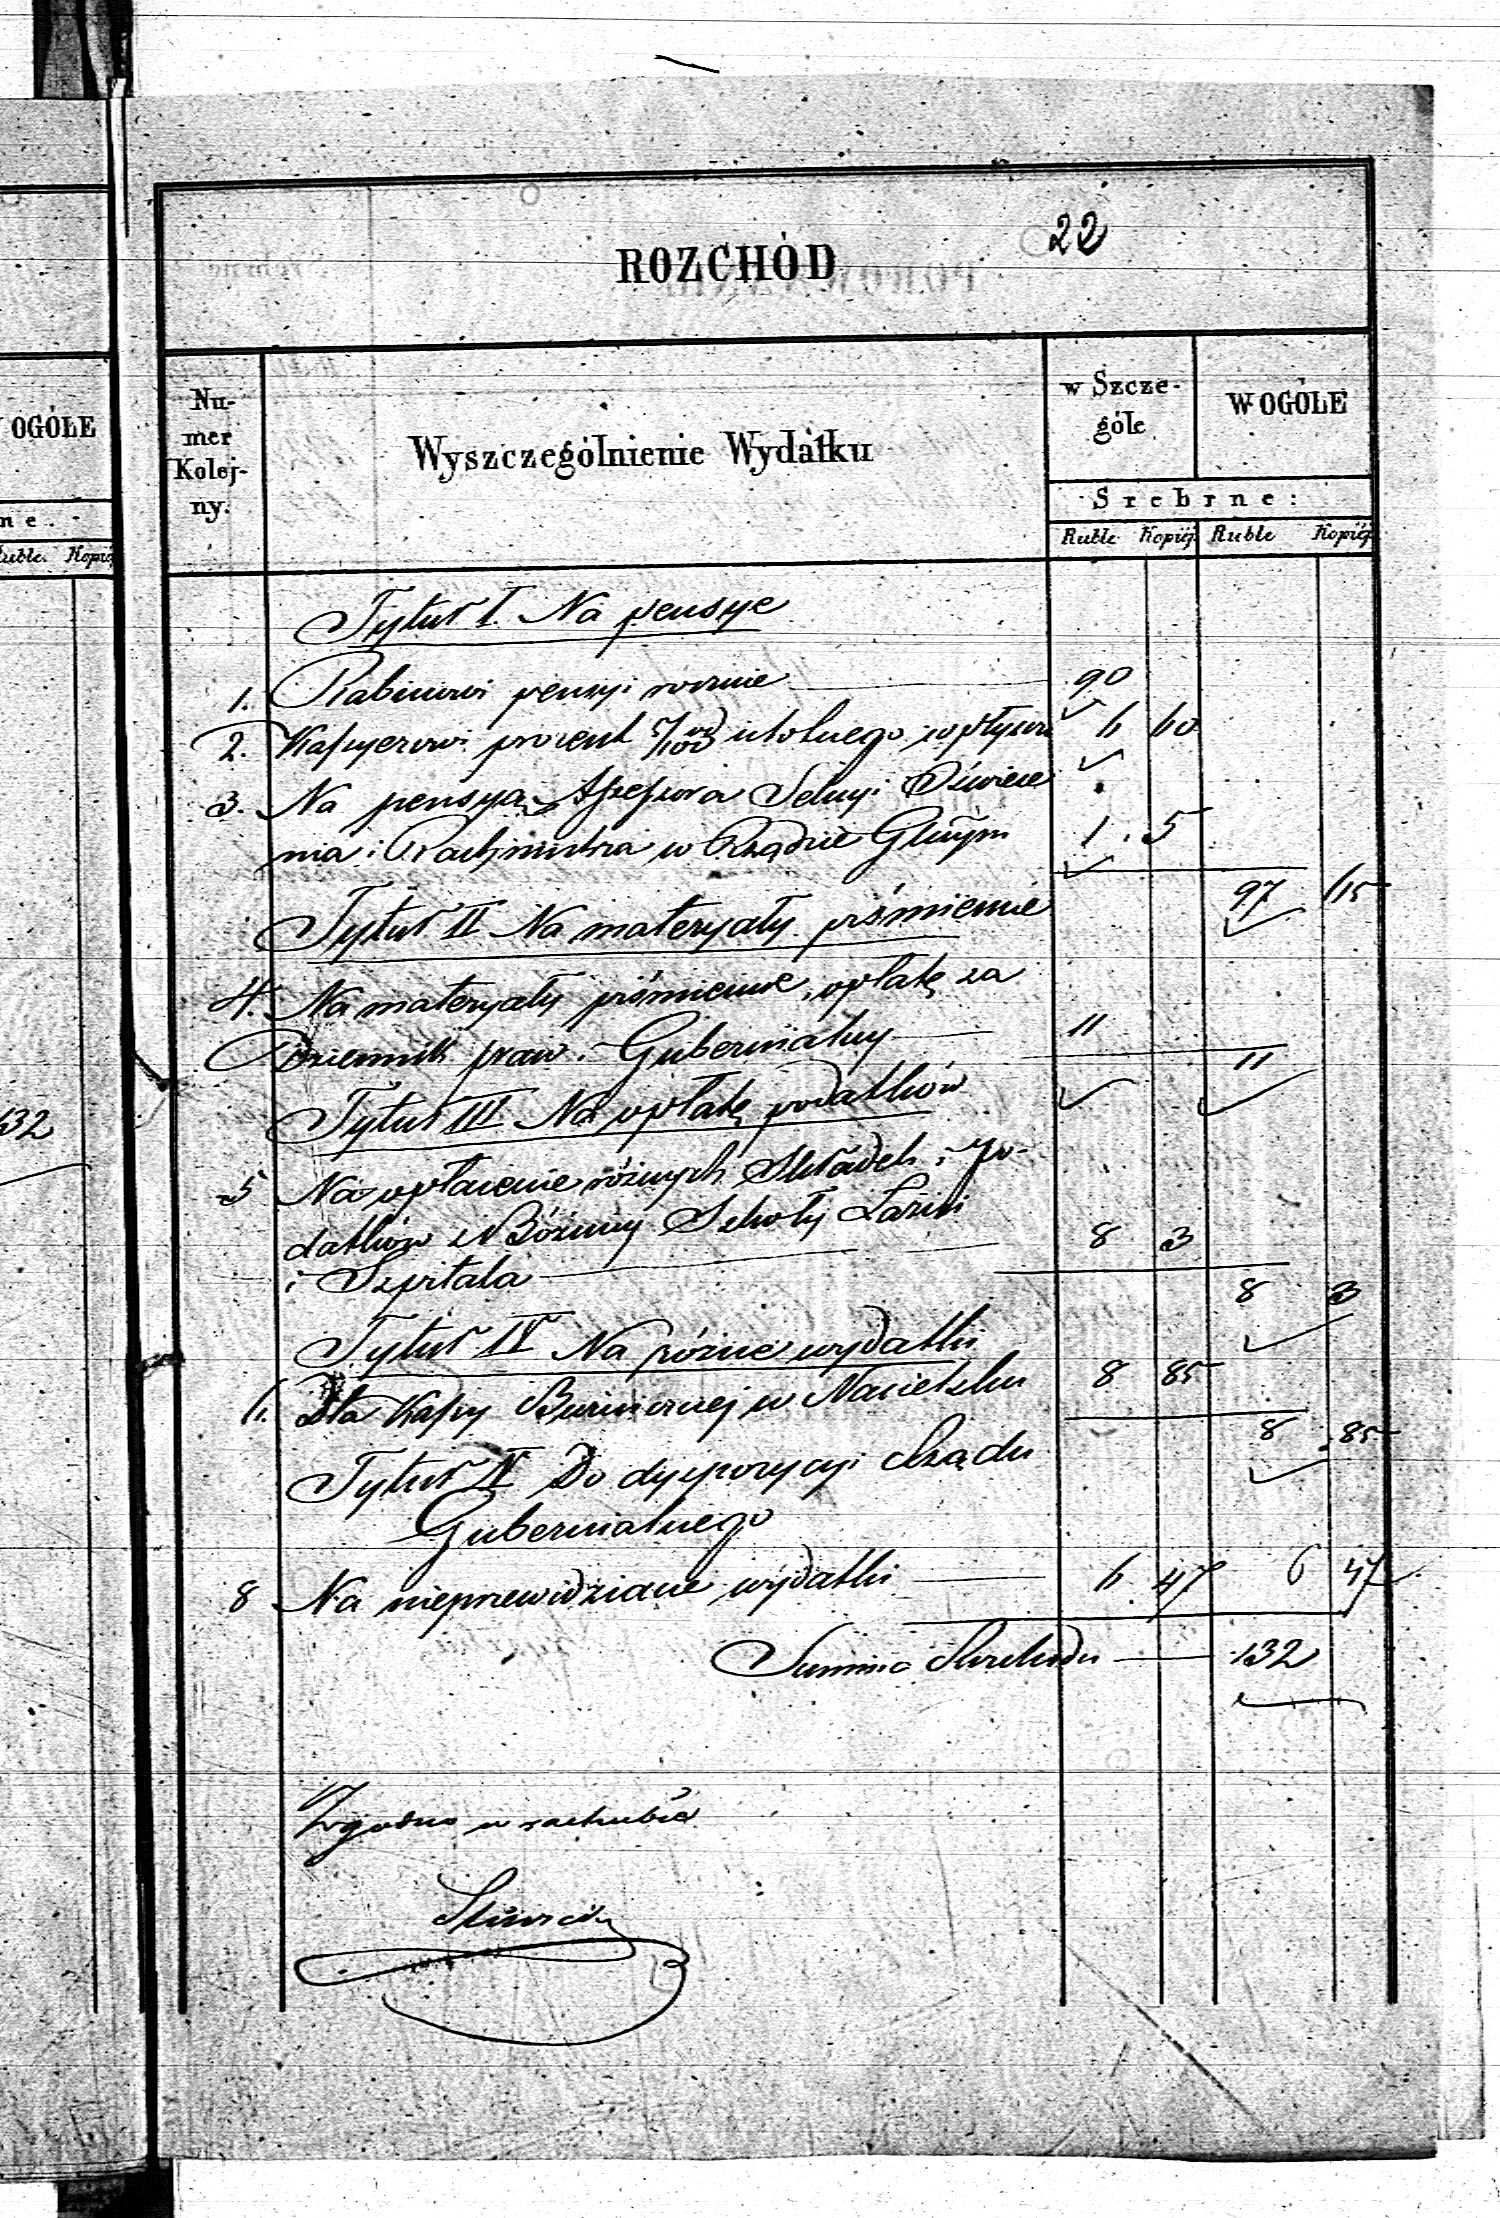 22
ROZCHÓD
OGÓLE
Nu-
mer
Kolej-
ny.
Wyszczególnienie Wydatku
w Szcze-
góle
W OGÓLE
Srebrne:
Ruble Kopiej Ruble Kopiej
ne.
Ruble. Kopiej
132
Tytuł I. Na pensye
1. Rabinowi pensyi rocznie 90
2. Kassyerowi procent od wpływu 6 60
3. Na pensyą Assessora Sekcyi
nia i Rachmistrza w Rządzie Glnym 1 5
97 65
Tytuł II Na materyały piśmienne
4. Na materyały piśmienne, opłatę za
Dziennik praw i Gubernialny 11
11
Tytuł III Na opłatę podatków
5 Na opłacenie różnych Składek i po-
datków z Bóżnicy Szkoły Łaźni
i Szpitala 8 3
8 3
Tytuł IV Na różne wydatki
6. Dla Kassy Bóżniczej w Nasielsku 8 85
8 85
Tytuł V Do dyspozycyi Rządu
Gubernialnego
8 Na nieprzewidziane wydatki 6 47 6 47
Summa Rozchodu 132
Zgodno w rachubie